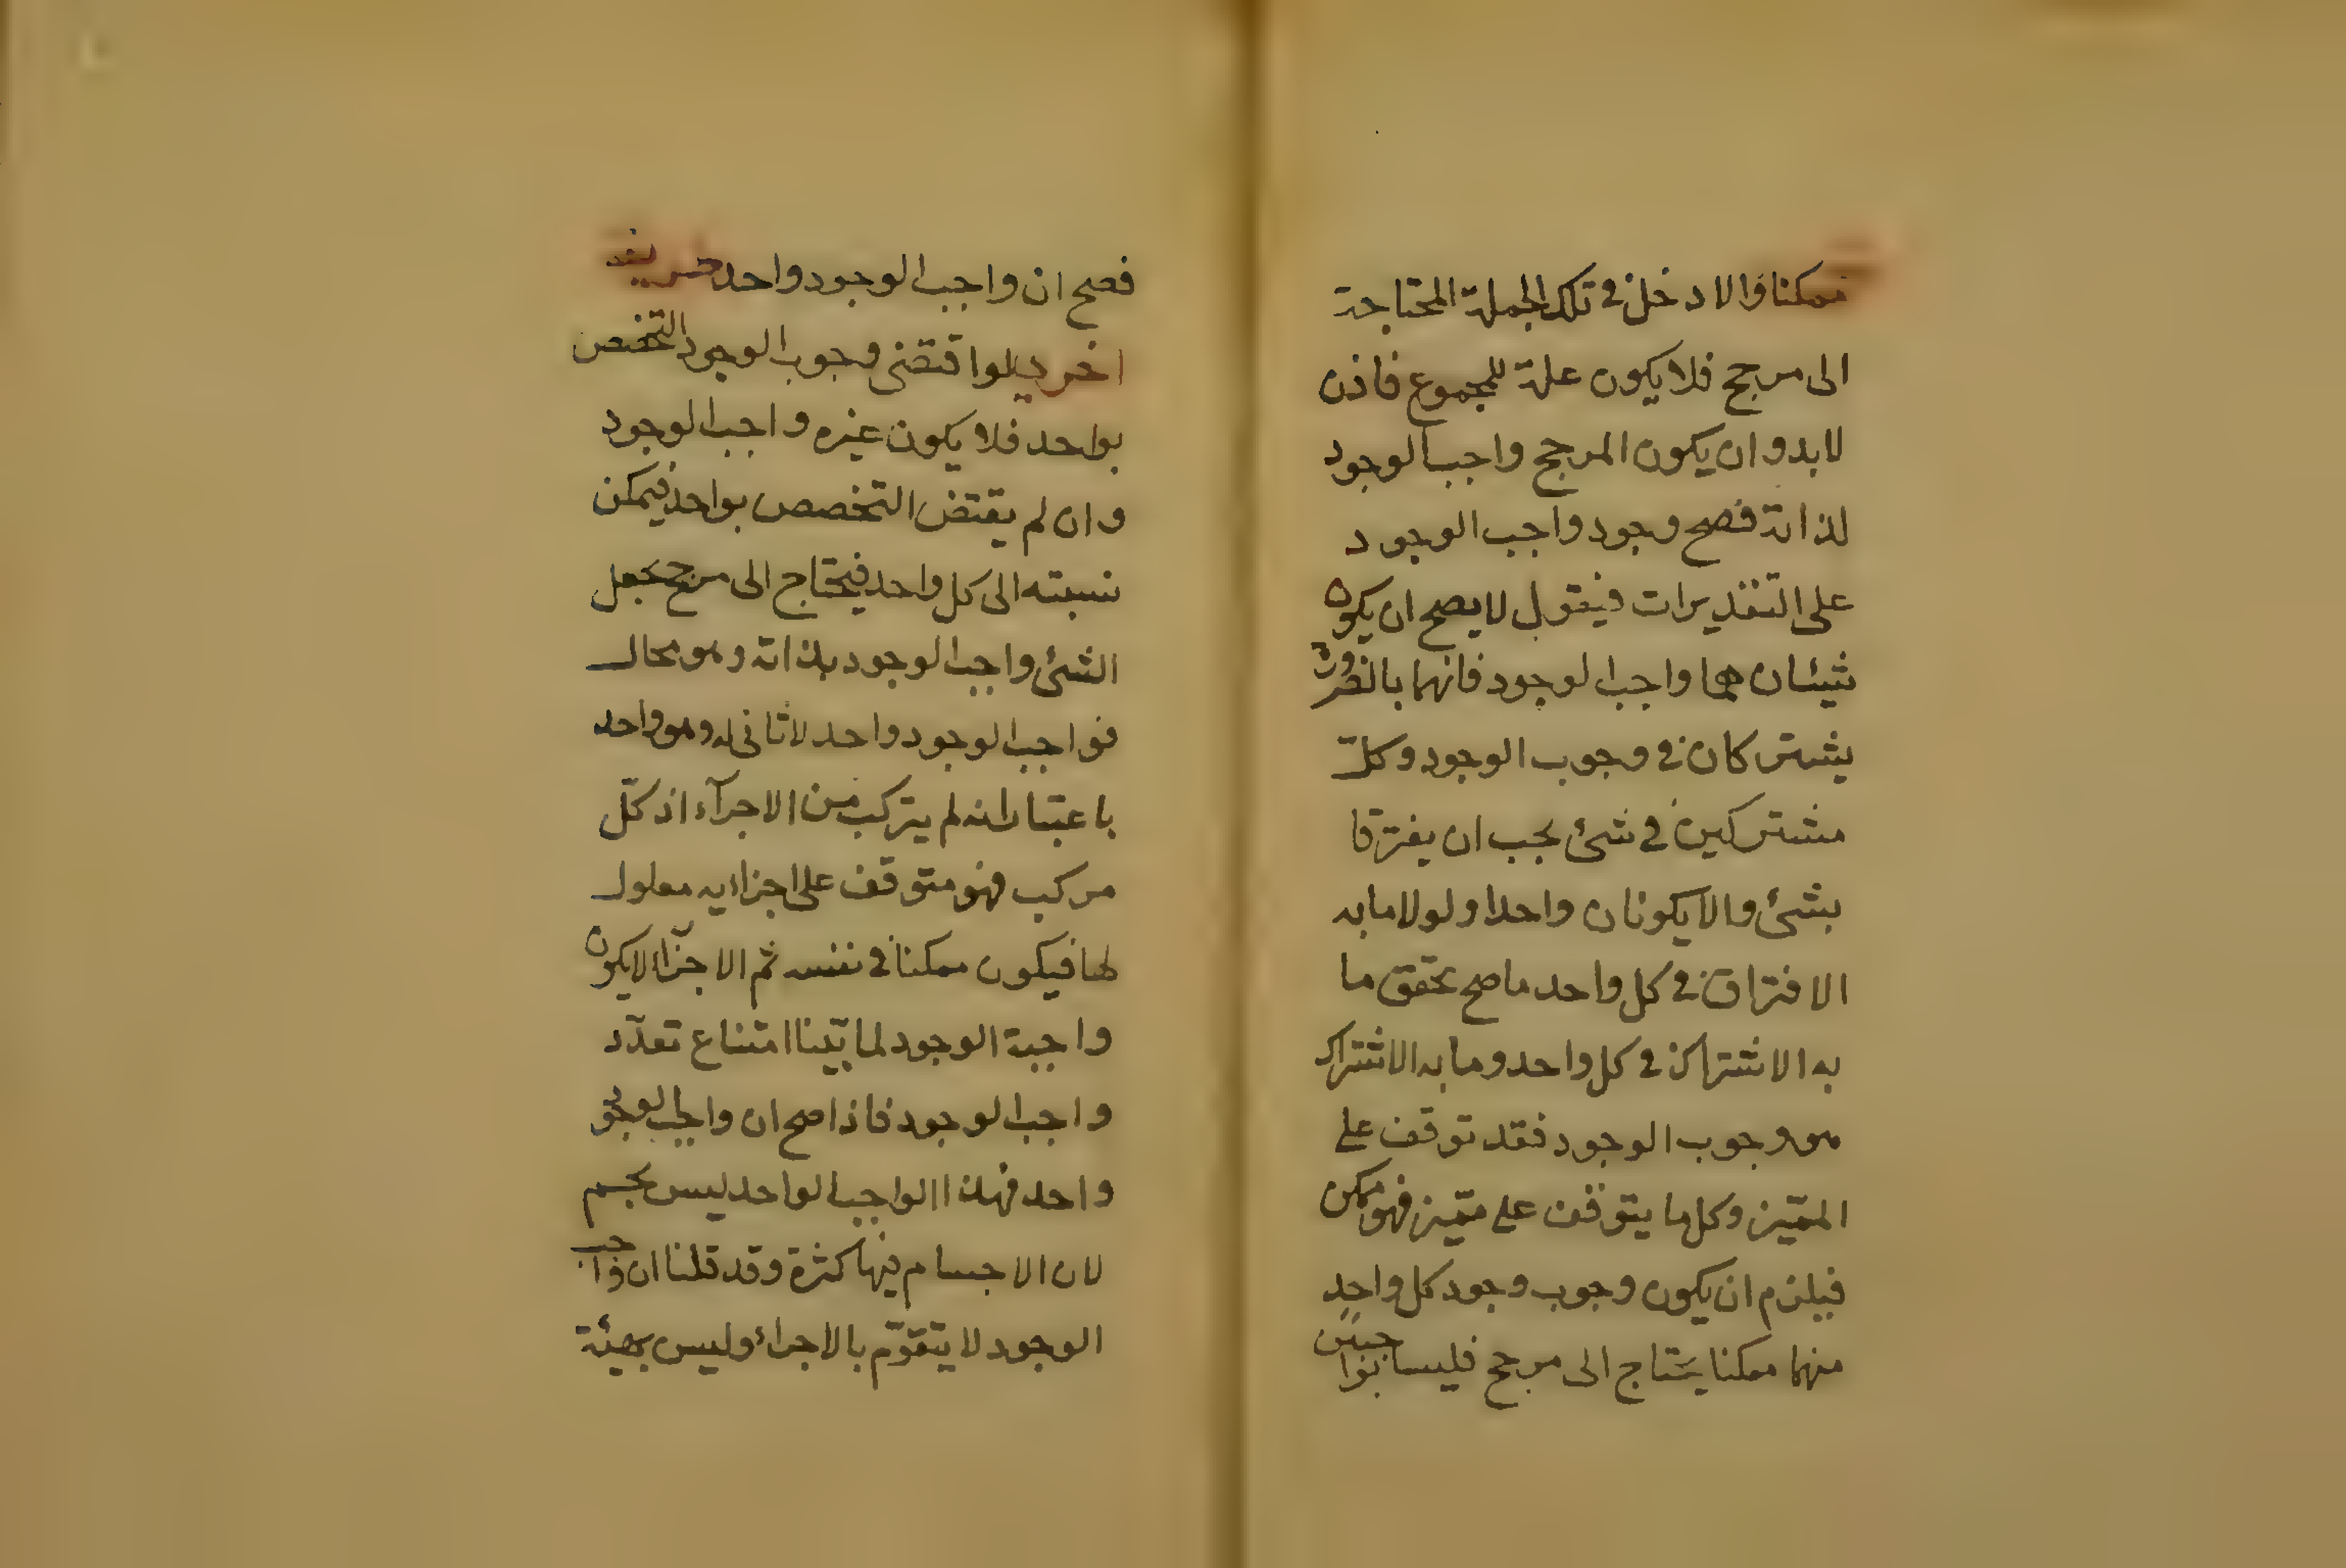 ممكنا والا دخل في تلك الجملة المحتاجة
الى مرجح فلا يكون علة للمجموع فاذن
لابد و ان يكون المرجح واجب الوجود
لذاته فصح وجود واجب الوجود
على التقديرات فيقول لا يصح ان يكون
شيئان هما واجبا لوجود فانهما بالضرورة
يشتركان في وجوب الوجود وكل
مشتركين في شئ يجب ان يفترقا
بشئ والا يكونان واحدا ولولا ما به
الافتراق في كل واحد ما صح تحقق ما
به الاشتراك في كل واحد وما به الاشتراك
هو وجوب الوجود فقد توقف على
المميّز وكل ما يتوقف على مميّز فهو ممكن
فيلزم ان يكون وجوب وجود كل واحدٍ
منهما ممكنا يحتاج الى مرجح فليسا بواجبين
فصح ان واجب الوجود واحد
اخر لو اقتضى وجوب الوجود التخصص
بواحد فلا يكون غيره واجب الوجود
وان لم يقتض التخصص بواحد فيمكن
نسبته الى كل واحد فيحتاج الى مرجح يجعل
الشئ واجب الوجود بذاته وهو محال
فواجب الوجود واحد لا ثاني له وهو واحد
باعتبار انه لم يتركب من الاجزآء اذ كلّ
مركب فهو متوقف على اجزايه معلول
لها فيكون ممكنا في نفسه ثم الاجزآء لا يكون
واجبة الوجود لما بيّنا امتناع تعدّد
واجب الوجود فاذا صح ان واجب الوجود
واحد فهذا الواجب الواحد ليس بجسم
لان الاجسام فيها كثرة وقد قلنا ان واجب
الوجود لا يتقوّم بالاجزاء وليس بهيئة